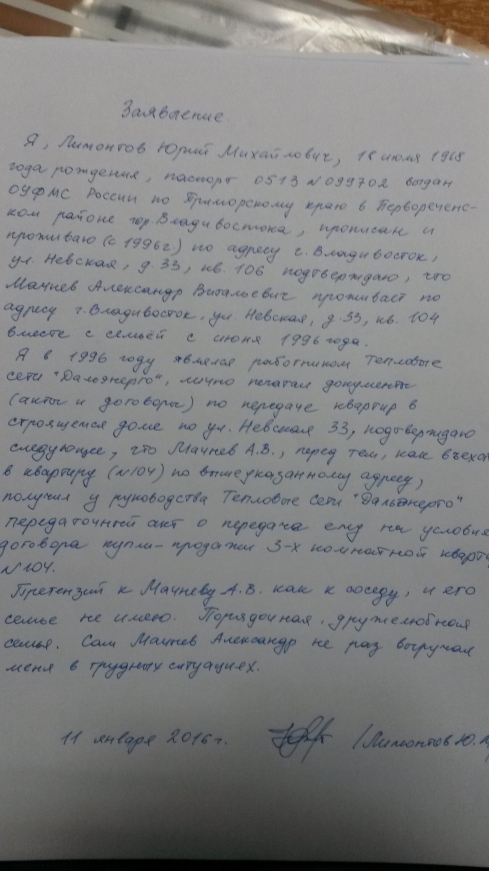 Заявление
Я, Лимонтов Юрий Михайлович, 18 июля 1968
года рождения, паспорт 0513 №099702 выдан
ОУФМС России по Приморскому краю в Первореченс-
ком районе гор. Владивостока, прописан и
проживаю (с 1996г.) по адресу г. Владивосток,
ул. Невская, д. 33, кв. 106 подтверждаю, что
Мачнев Александр Витальевич проживает по
адресу г. Владивосток, ул Невская, д. 33, кв. 104
вместе с семьёй с июня 1996 года.
Я в 1996 году являлся работником Тепловые
сети "Дальэнерго", лично печатал документы
(акты и договоры) по передаче квартир в
строящемся доме по ул. Невская 33, подтверждаю
следующее, что Мачнев А.В., перед тем, как въехат
в квартиру (№104) по вышеуказанному адресу,
получил у руководства Тепловые сети "Дальэнерго"
передаточный акт о передача ему на условия
договора купли-продажи 3-х комнатной кварти
№104.
Претензий к Мачневу А.В. как к соседу, и его
семье не имею. Порядочная, дружелюбная
семья. Сам Мачнев Александр не раз выручал
меня в трудных ситуациях.
11 января 2016г. /Лимонтов Ю.М